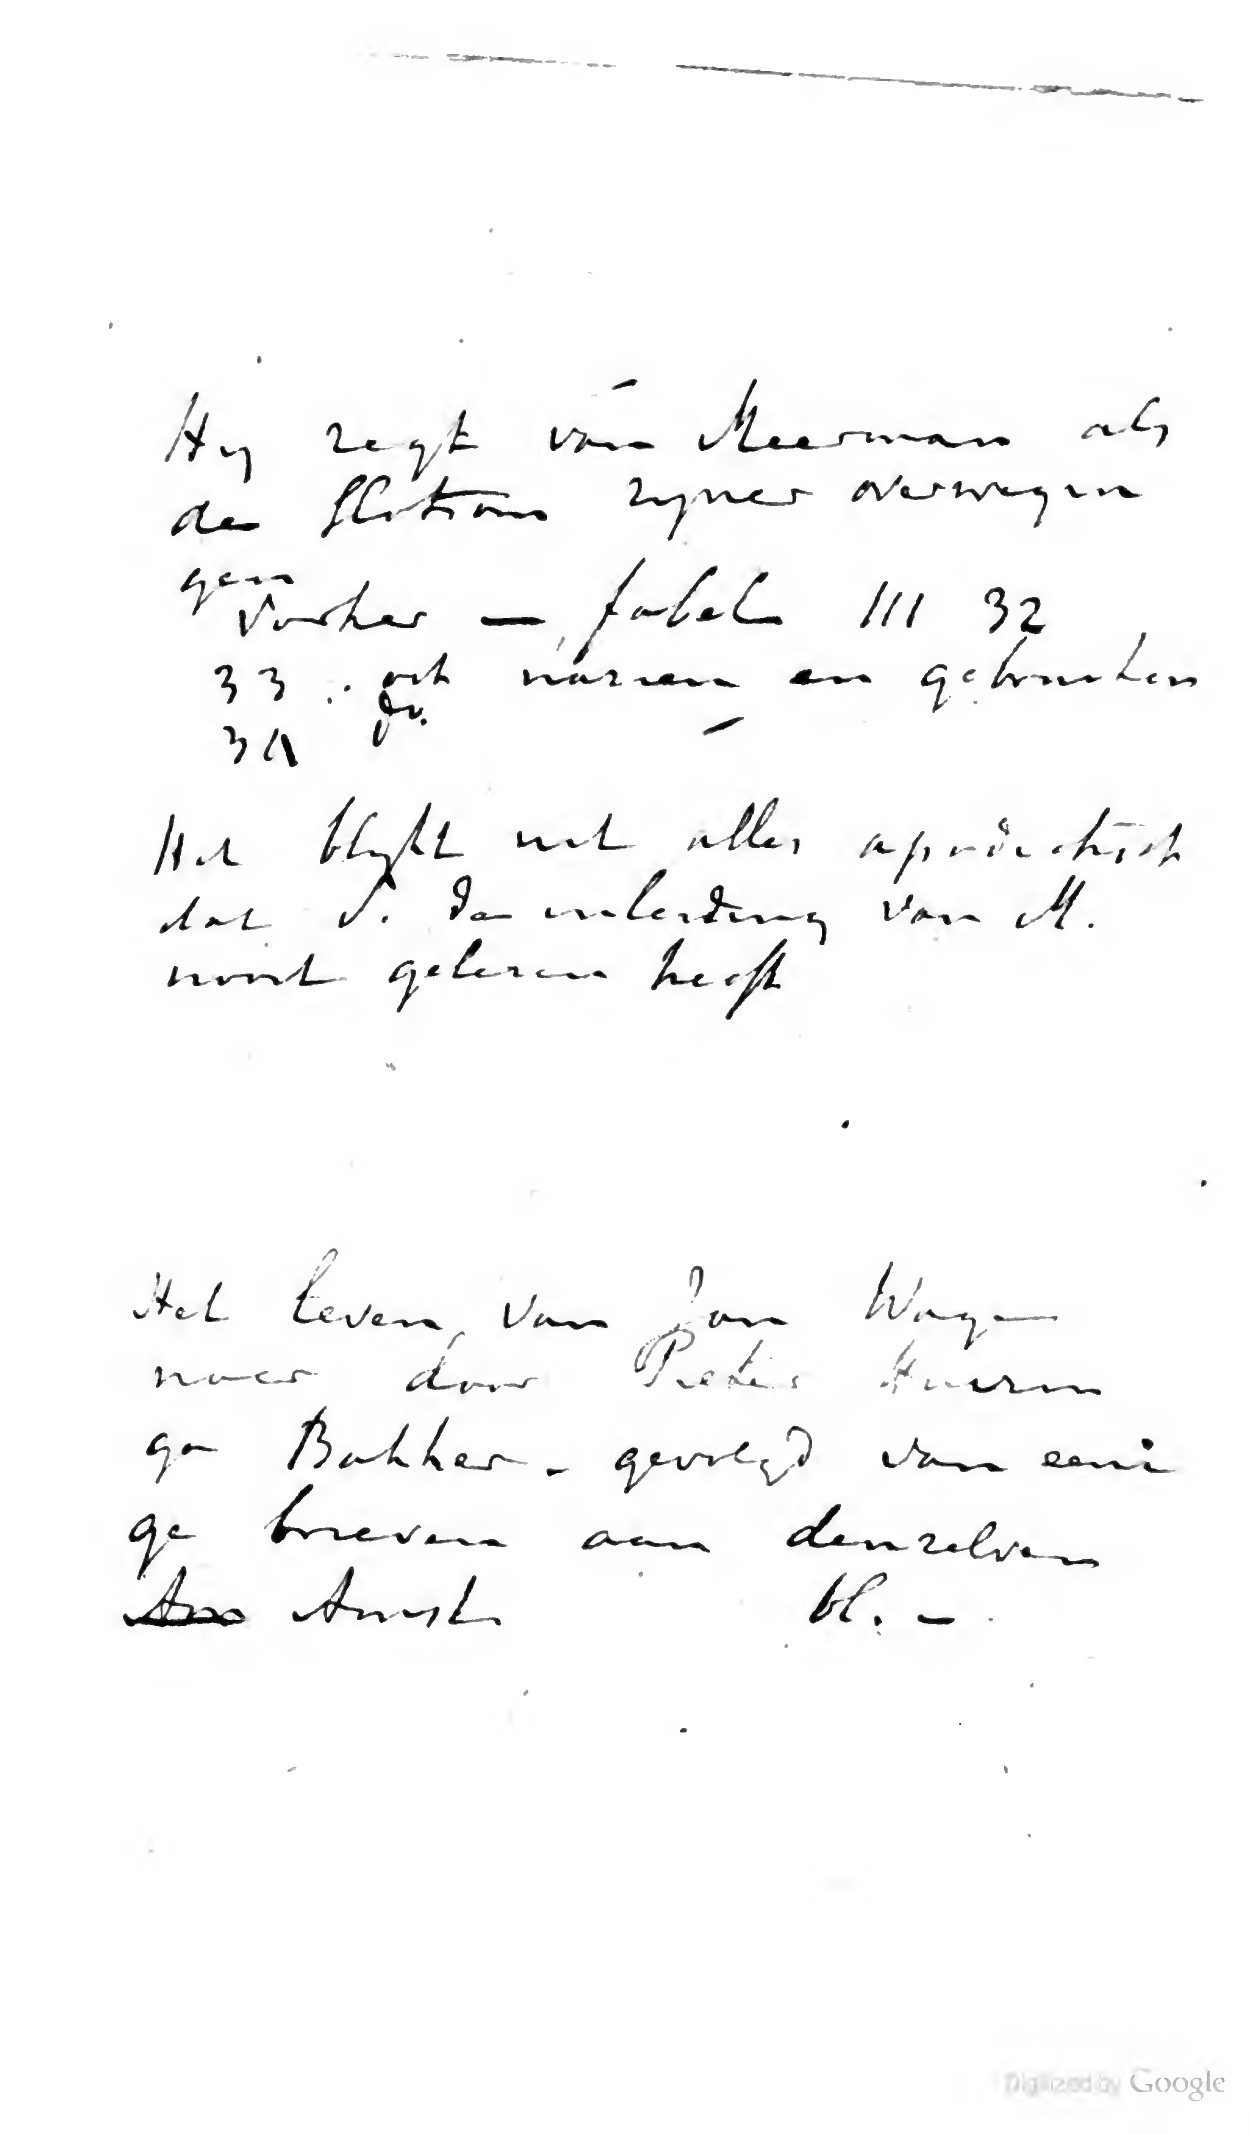 Hy zegt van Meerman als
de zyner overwegin
gen
Vorher — fabel III 32
33 : ook en gebruiken
34
Het blykt uit alles
dat S. de inleiding van M.
nooit gelezen heeft
Het leven van Jan Wage
naer door Pieter Huizin
ga Bakker - gevolgd van eeni
ge brieven aan denzelven
Amst. bl. —
Digitized by Google